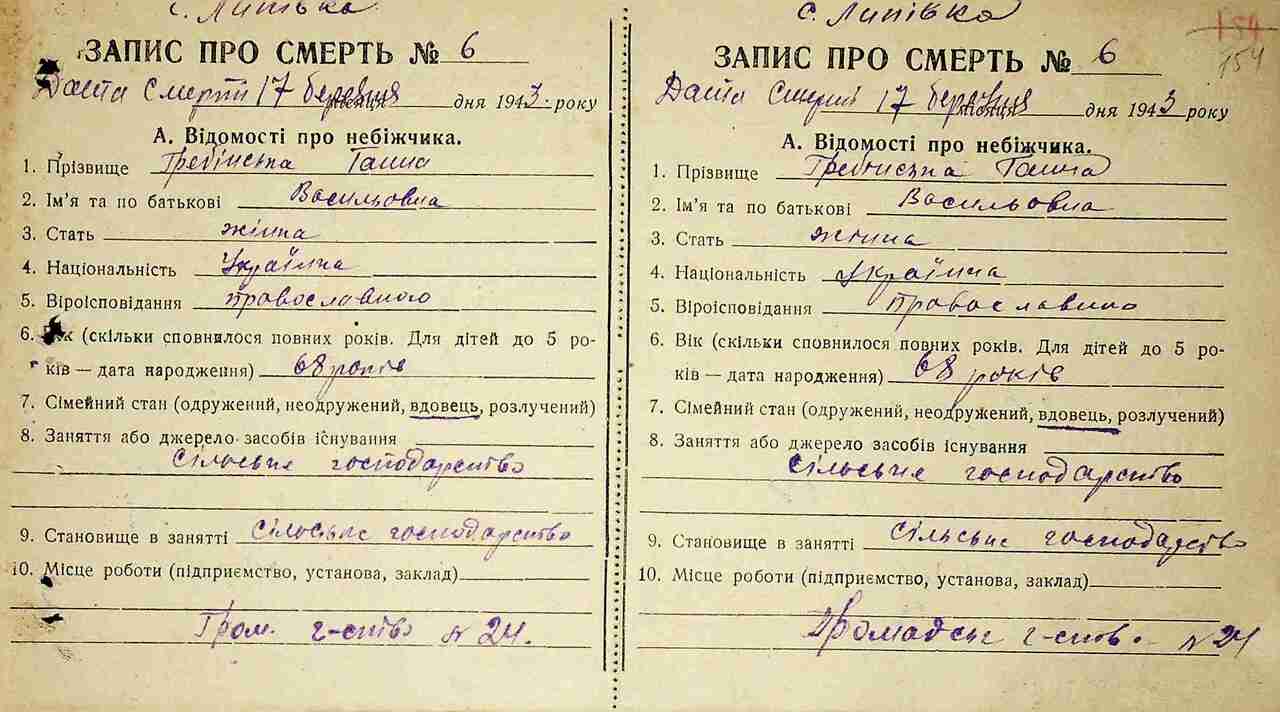 с. Липівка
ЗАПИС ПРО СМЕРТЬ № 6
Дата Смерти 17 березня місяця дня 1943. року
А. Відомості про небіжчика.
1. Прізвище Гребінська Ганна
2. Ім'я та по батькові Васильовна
3. Стать жінка
4. Національність Українка
5. Віроісповідання православного
6. Вік (скільки сповнилося повних років. Для дітей до 5 ро-
ків — дата народження) 68 років
7. Сімейний стан (одружений, неодружений, вдовець, розлучений)
8. Заняття або джерело засобів існування
Сільське господарство
9. Становище в занятті Сільське господарство
10. Місце роботи (підприємство, установа, заклад)
Гром. г-ство № 24.
с. Липівка
154
154
ЗАПИС ПРО СМЕРТЬ № 6
Дата Смерти 17 березня місяця дня 1943 року
А. Відомості про небіжчика.
1. Прізвище Гребинська Ганна
2. Ім'я та по батькові Васильовна
3. Стать жінка
4. Національність Українка
5. Віроісповідання православно
6. Вік (скільки сповнилося повних років. Для дітей до 5 ро-
ків — дата народження) 68 років
7. Сімейний стан (одружений, неодружений, вдовець, розлучений)
8. Заняття або джерело засобів існування
Сільське господарство
9. Становище в занятті Сільське господарство
10. Місце роботи (підприємство, установа, заклад)
Громадськ г-ство. № 24